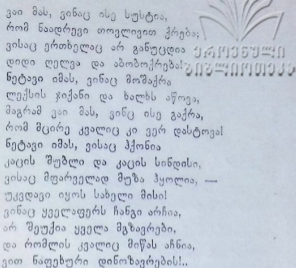 ვაი მას, ვინაც ისე სუსტია,
რომ ნაადრევი თოვლივით ქრება;
ვისაც ერთხელაც არ განუცდია
დიდი ღელვა და აბობოქრება!
ნეტავი იმას, ვინაც მოშაქრა
ლექსის ჯიქანი და ხალხს აწოვა,
მაგრამ ვაი მას, ვინც ისე გაქრა,
რომ მცირე კვალიც კი ვერ დასტოვა!
ნეტავი იმას, ვისაც ჰქონია
კაცის შუბლი და კაცის სინდისი,
ვისაც მფარველად მუზა ჰყოლია, —
უკვდავი იყოს სახელი მისი!
ვინაც ყველაფერს ჩანგი არჩია,
არ შეუქია ყველა მგზავრები,
და რომლის კვალიც მიწას აჩნია,
ვით ნაფეხური დინოზავრების!..
ეროვნული
ბიბლიოთეკა